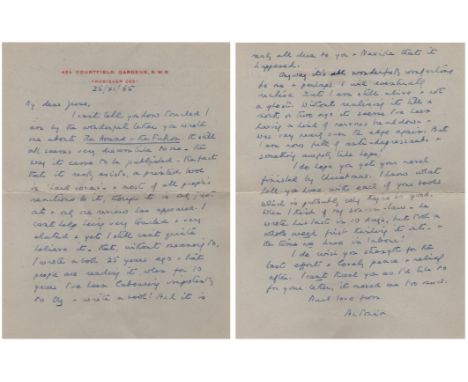 42A COURTFIELD GARDENS, S.W.5
FROBISHER
25/XI/65
My dear
I can't tell you how touched I
am by the wonderful letter you wrote
me about The Hound + the Falcon. It still
all seems very to me - the
way it came to be published. The fact
that it really exists, a printed book
in 'hard covers' + most of all people's
reactions to it, though it is only just
out + only one review has appeared. I
can't help being very touched + very
elated + yet I still can't quite
believe it. That, without meaning to,
I wrote a book 25 years ago - + that
people are reading it when for 10
years I've been labouring
to try + write a book! And it is
really all due to you + that it
happened.
Anyway it's all wonderfully comforting
to me + perhaps I will eventually
realise that I am still alive + not
a ghost. Without realising it till a
month or two ago it seems I've been
having a kind of nervous breakdown +
was very nearly over the edge again. But
I am now full of anti-depressants +
something suspiciously like hope.
I do hope you get your novel
finished by Christmas. I know what
hell you have with each of your books
which is probably why they're so good.
When I think of my
wrote his last in 10 days, but took a
whole week first thinking it out. +
the time we have in labour!
I do wish you strength for the
last effort + lovely peace + relief
after. I can't thank you as I'd like to
for your letter, it moved me so much.
Much love from
Antonia